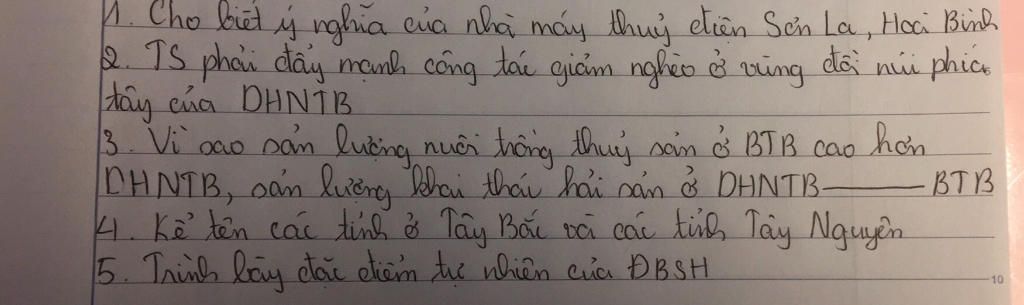 1. Cho biết ý nghĩa của nhà máy thuỷ điện Sơn La, Hoà Bình
2. TS phải đẩy mạnh công tác giảm nghèo ở vùng đồi núi phía
tây của DHNTB
3. Vì sao sản lượng nuôi trồng thuỷ sản ở BTB cao hơn
DHNTB, sản lượng khai thác hải sản ở DHNTB——— BTB
4. Kể tên các tỉnh ở Tây Bắc và các tỉnh Tây Nguyên
5. Trình bày đặc điểm tự nhiên của ĐBSH
10